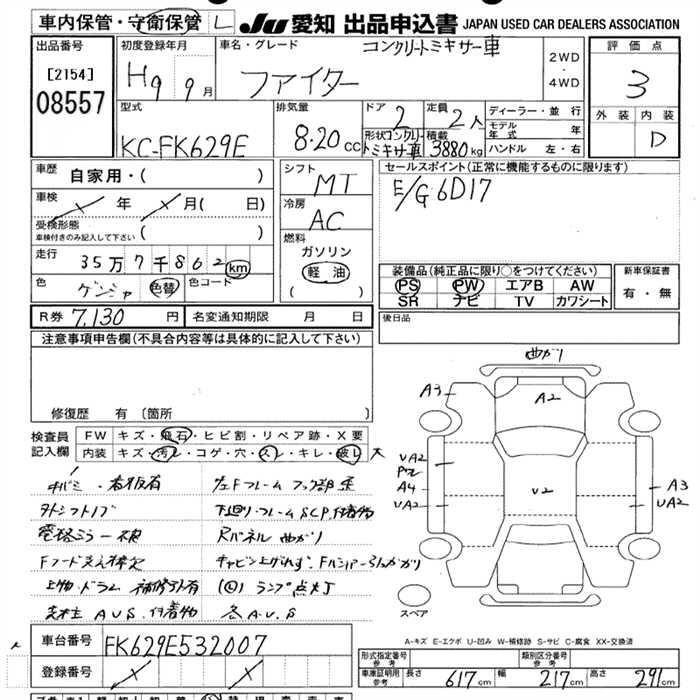 車内保管・守衛保管 L JU 愛知 出品申込書 JAPAN USED CAR DEALERS ASSOCIATION
出品番号
[2154]
08557
初度登録年月
H9 9月
車名・グレード
コンクリートミキサー車
ファイター
2WD
・
4WD
評価点
3
外装 内装
D
型式
KC-FK629E
排気量
8.20 CC
ドア 2
定員 2人
形状 コンクリートミキサ車
積載 3880kg
ディーラー・並行
モデル年式 年
ハンドル 左・右
車歴 自家用・( )
車検 年 月( 日)
受検形態
車検付きのみ記入して下さい ( )
走行 35万7千862 km
色 ゲンシャ 色替 色コード
シフト
MT
冷房
AC
燃料
ガソリン
軽油
( )
セールスポイント(正常に機能するものに限ります)
E/G 6D17
装備品(純正品に限り○をつけてください)
PS PW エアB AW
SR ナビ TV カワシート
新車保証書
有・無
R券 7,130 円 名変通知期限 月 日
後日品
注意事項申告欄(不具合内容等は具体的に記入して下さい)
修復歴 有 〔箇所
検査員記入欄
FW キズ・飛石・ヒビ割・リペア跡・X要
内装 キズ・汚レ・コゲ・穴・スレ・キレ・破レ 大
曲がり
A3 A2
UA2
A4
UA2
V2
A3
UA2
看板有
外シフトノブ
電格ミラー
左Fフレーム フック部
下廻り・フレームSCP.付着物
Rパネル 曲がり
上物・ドラム 補修跡有
ランプ点灯
AUS.付着物
各A.U.S
スペア
A-キズ E-エクボ U-凹み W-補修跡 S-サビ C-腐食 XX-交換済
車台番号 FK629E532007
登録番号
形式指定番号 参考
類別区分番号 参考
車庫証明用 参考 長さ 617cm 幅 217cm 高さ 291cm